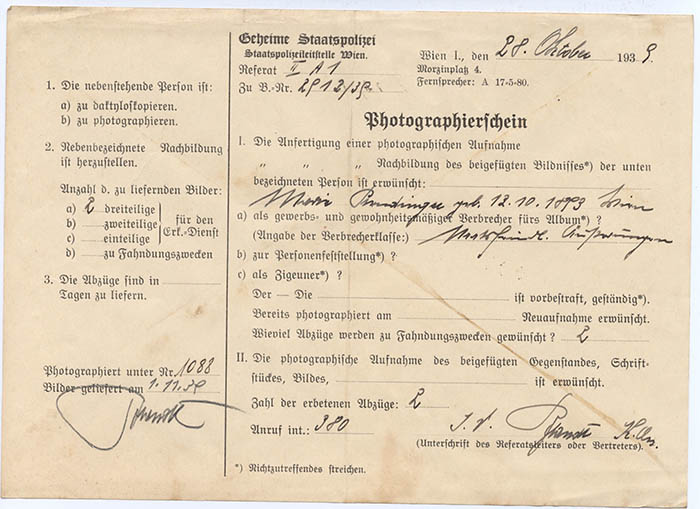 1. Die nebenstehende Person ist:
a) zu daktyloskopieren.
b) zu photographieren.
2. Nebenbezeichnete Nachbildung
ist herzustellen.
Anzahl d. zu liefernden Bilder:
a) 2 dreiteilige
b) zweiteilige
c) einteilige
für den
Erk.-Dienst
d) zu Fahndungszwecken
3. Die Abzüge sind in
Tagen zu liefern.
Photographiert unter Nr. 1088
Bilder geliefert am 1.11.39
Geheime Staatspolizei
Staatspolizeileitstelle Wien.
Referat II A 1
Zu B.-Nr. 2912/39
Wien I., den 28. Oktober 1939.
Morzinplatz 4.
Fernsprecher: A 17-5-80.
Photographierschein
I. Die Anfertigung einer photographischen Aufnahme
„ „ „ Nachbildung des beigefügten Bildnisses*) der unten
bezeichneten Person ist erwünscht:
Marie geb. 12.10.1893 Wien
a) als gewerbs- und gewohnheitsmäßiger Verbrecher fürs Album*) ?
(Angabe der Verbrecherklasse:) staatsfeindl. Äußerungen
b) zur Personenfeststellung*) ?
c) als Zigeuner*) ?
Der — Die ist vorbestraft, geständig*).
Bereits photographiert am Neuaufnahme erwünscht.
Wieviel Abzüge werden zu Fahndungszwecken gewünscht ? 2
II. Die photographische Aufnahme des beigefügten Gegenstandes, Schrift-
stückes, Bildes, ist erwünscht.
Zahl der erbetenen Abzüge: 2
Anruf int.: 380
(Unterschrift des Referatsleiters oder Vertreters).
*) Nichtzutreffendes streichen.